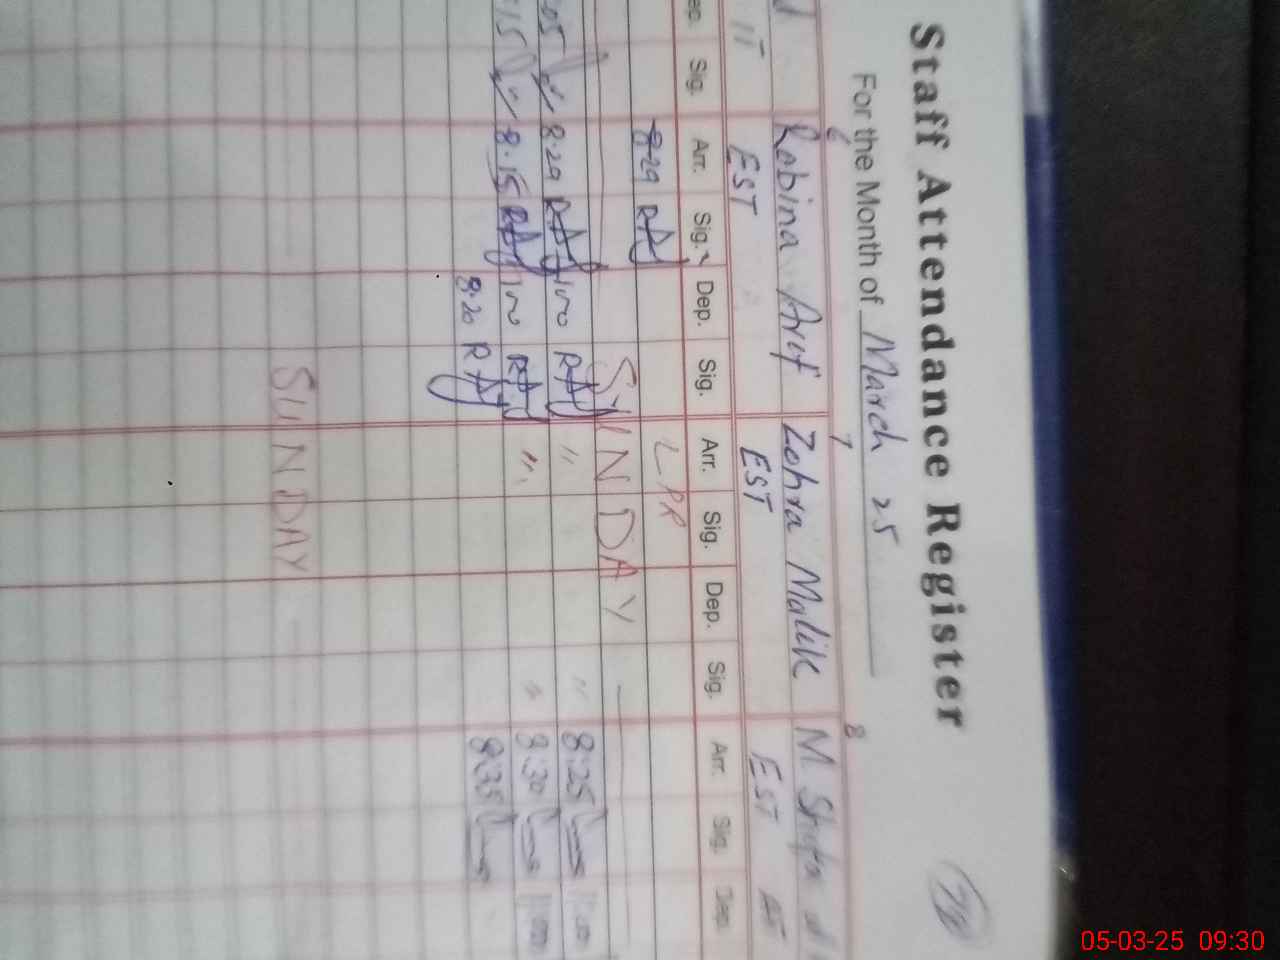 Staff Attendance Register
For the Month of March 25
6 7 8
Robina Arif Zohra Malik M.
EST EST EST
Sig. Arr. Sig. Dep. Sig. Arr. Sig. Dep. Sig. Arr. Sig. Dep.
8.29 RA LPR
SUNDAY
8.29 RA RA " " 8:25
8.15 RA RA " " 8:30 11:00
8.20 RA 8:35
SUNDAY
05-03-25 09:30